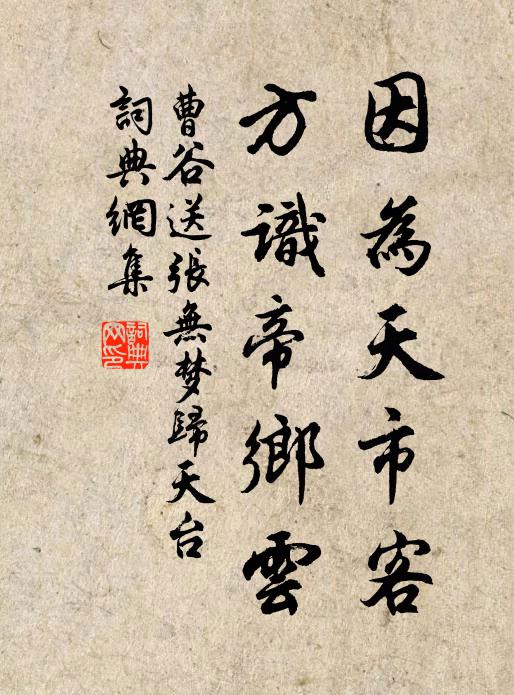 因為天市客
方識帝鄉雲
曹谷送張無梦歸天台
詞典網集
詞典网印